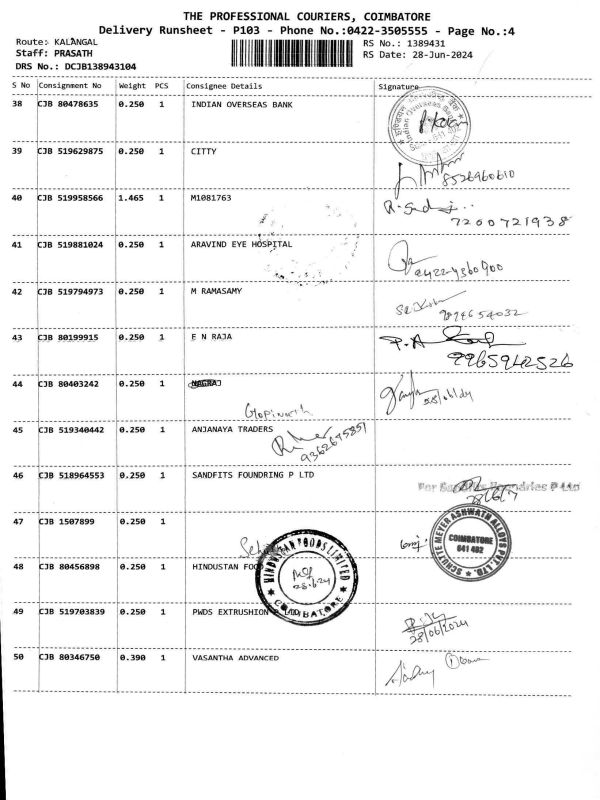 THE PROFESSIONAL COURIERS, COIMBATORE
Delivery Runsheet - P103 - Phone No.:0422-3505555 - Page No.:4
Route: KALANGAL
RS No.: 1389431
Staff: PRASATH
RS Date: 28-Jun-2024
DRS No.: DCJB138943104
S No Consignment No Weight PCS Consignee Details Signature
38 CJB 80478635 0.250 1 INDIAN OVERSEAS BANK
Indian Overseas Bank
39 CJB 519629875 0.250 1 CITTY
8526960610
40 CJB 519958566 1.465 1 M1081763
7200721938
41 CJB 519881024 0.250 1 ARAVIND EYE HOSPITAL
42 CJB 519794973 0.250 1 M RAMASAMY
43 CJB 80199915 0.250 1 E N RAJA
9965942526
44 CJB 80403242 0.250 1 NAGRAJ
28/06/24
Gopinath
45 CJB 519340442 0.250 1 ANJANAYA TRADERS
9362675851
46 CJB 518964553 0.250 1 SANDFITS FOUNDRING P LTD
For Sandfits Foundries P Ltd
47 CJB 1507899 0.250 1
SCHUTTE MEYER ASHWATH ALLOYS PVT. LTD.
COIMBATORE
641 402
48 CJB 80456898 0.250 1 HINDUSTAN FOOD
HINDUSTAN FOODS LIMITED
COIMBATORE
49 CJB 519703839 0.250 1 PWDS EXTRUSHION P LTD
28/06/2024
50 CJB 80346750 0.390 1 VASANTHA ADVANCED